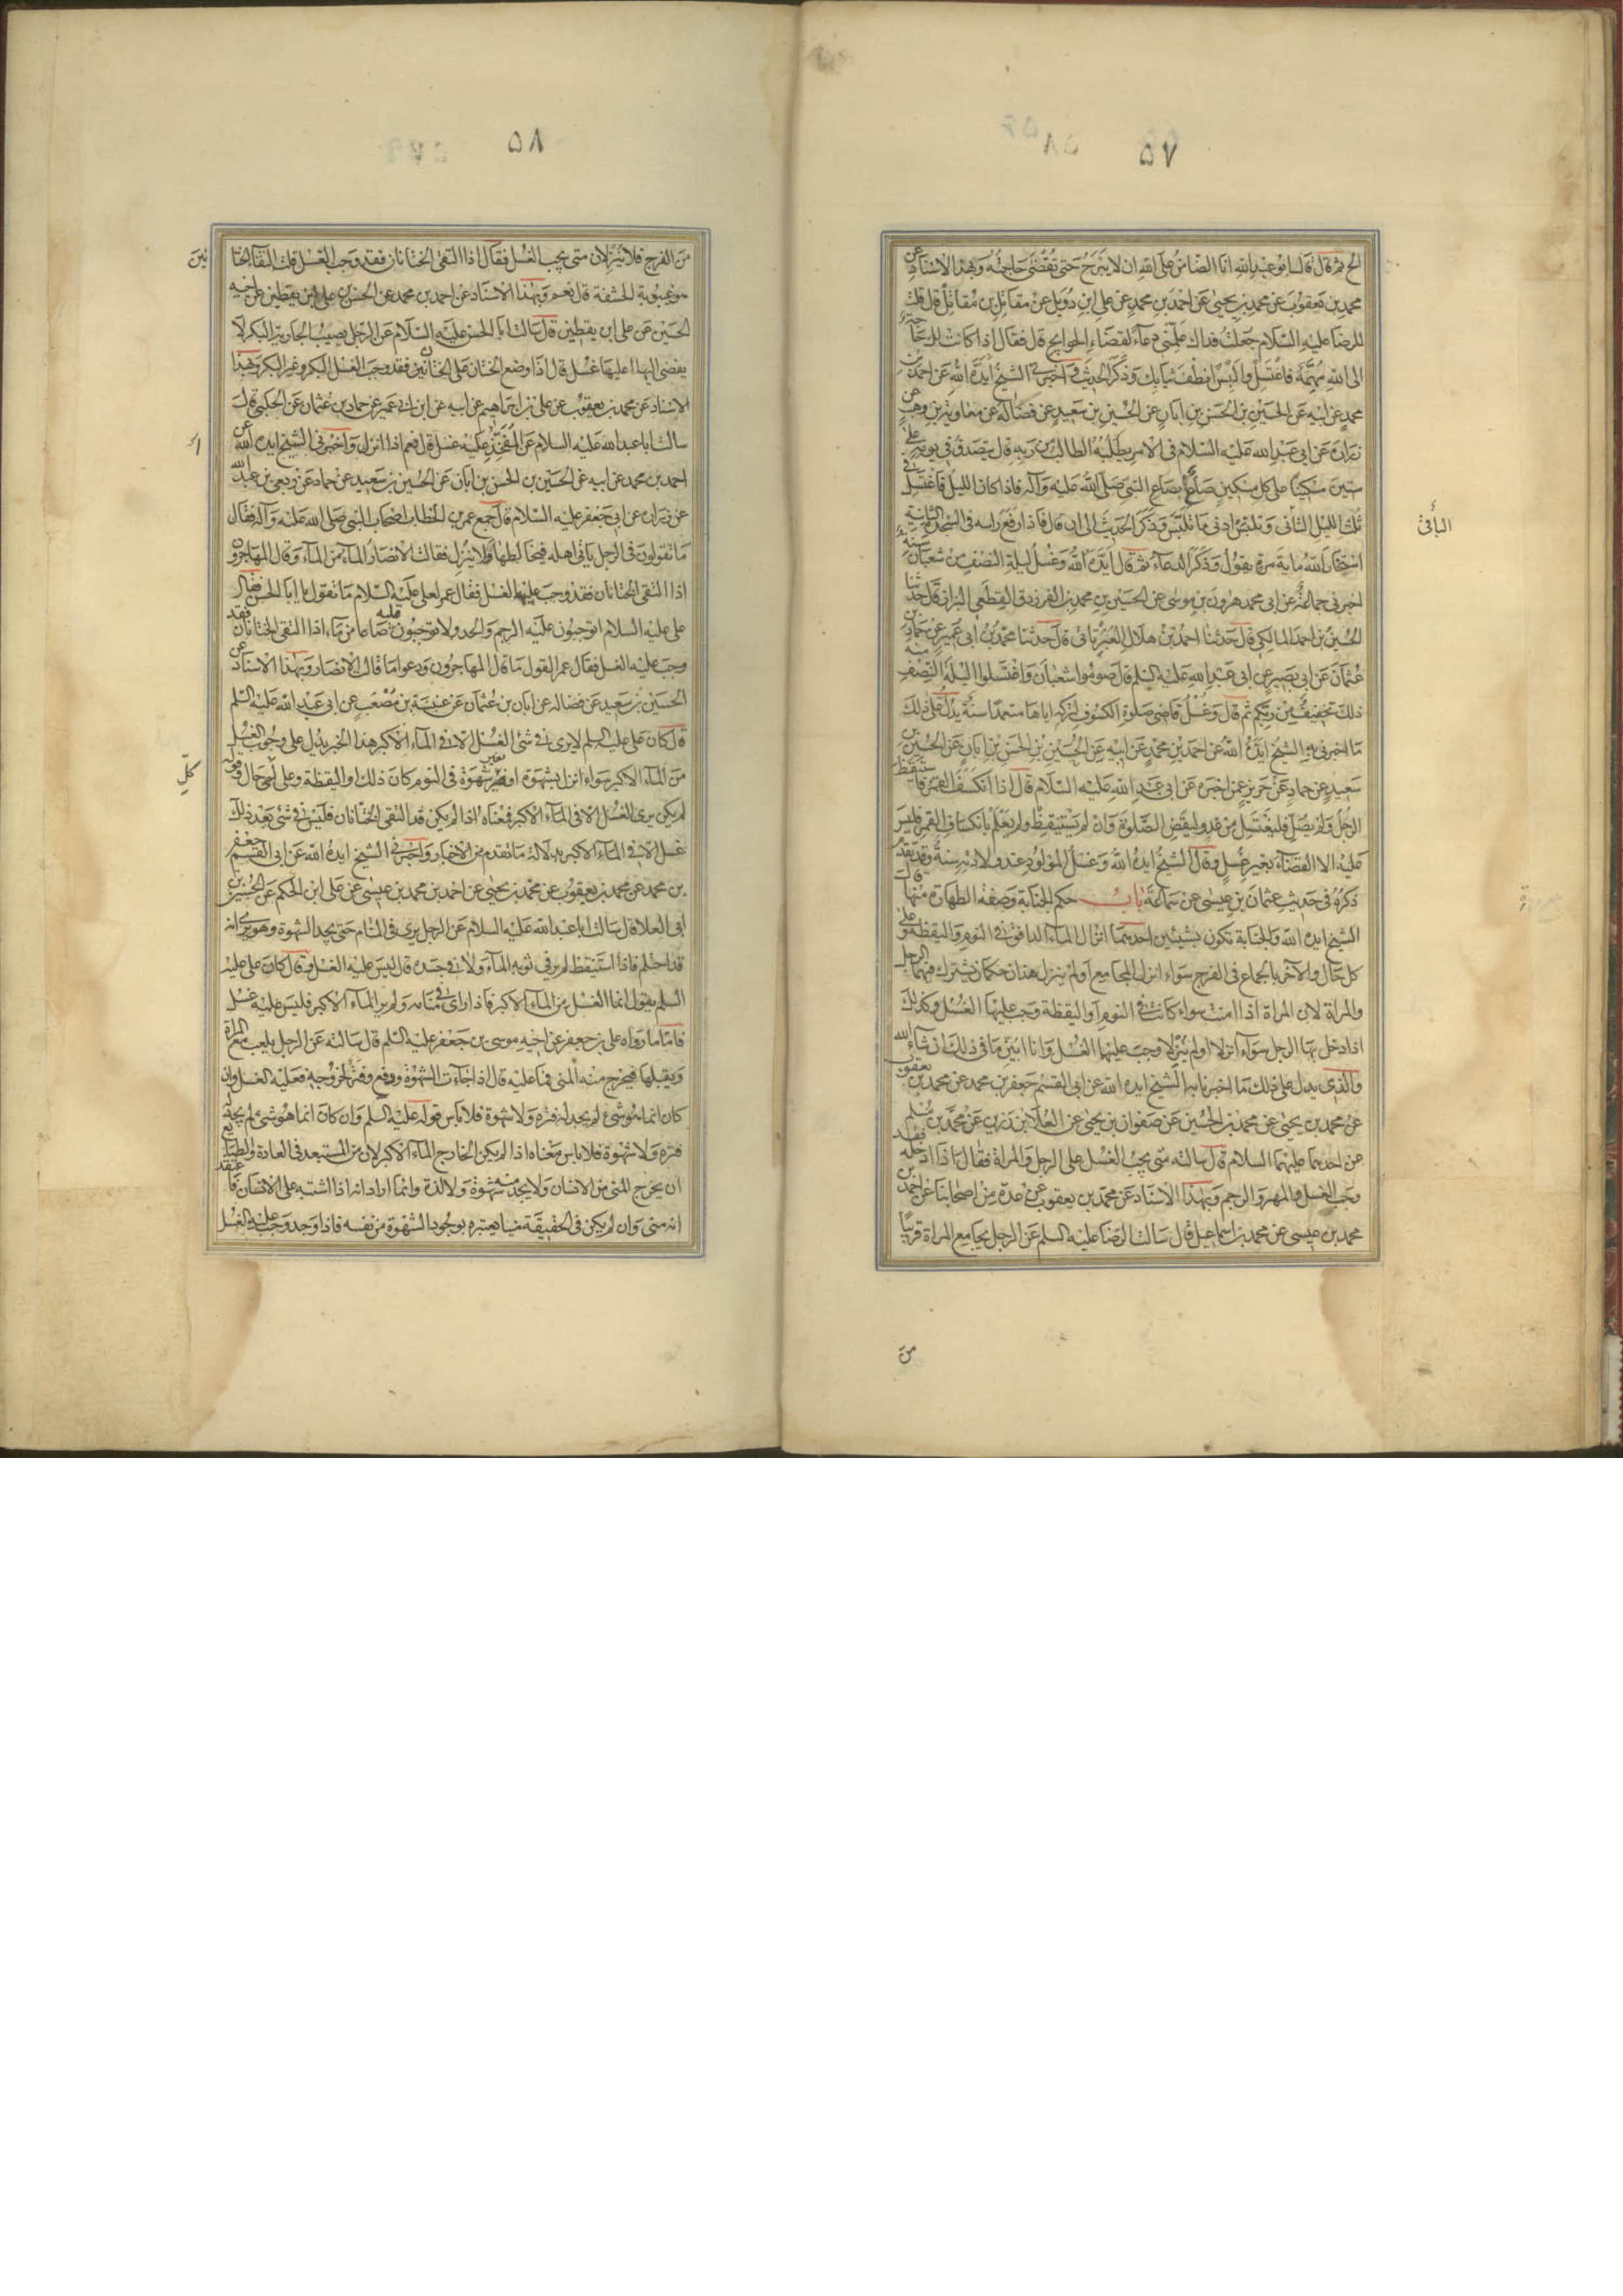 ٥٧
الخ ثم قال قال ابو عبد الله انا الضامن على الله ان لا يبرح حتى تقضى حاجته وبهذا الاسناد عن
محمد بن يعقوب عن محمد بن يحيى عن احمد بن محمد عن على ابن دويل عن مقاتل بن مقاتل قال قلت
للرضا عليه السلام جعلت فداك علمنى دعاء لقضاء الحوايج قال فقال اذا كانت لك حاجة
الى الله مهمة فاغتسل والبس انظف ثيابك وذكر الحديث واخبرنى الشيخ ايده الله عن احمد بن
محمد عن ابيه عن الحسين بن الحسن بن ابان عن الحسين بن سعيد عن فضالة عن معاوية بن وهب عن
زرارة عن ابى عبد الله عليه السلام فى الامر يطلبه الطالب من ربه قال يتصدق فى يومه على
ستين مسكينا على كل مسكين صاع بصاع النبى صلى الله عليه وآله فاذا كان الليل فاغتسل فى
ثلث الليل الثانى وتلبس ادنى ما تلبس وذكر الحديث الى ان قال فاذا رفع راسه فى السجدة الثانية
استخار الله ماية مرة يقول وذكر الدعاء ثم قال ايده الله وغسل ليلة النصف من شعبان سنة
اخبرنى جماعة عن ابى محمد هرون بن موسى عن الحسين بن محمد بن الفرزدق القطعى البزاز قال حدثنا
الحسين بن احمد المالكى قال حدثنا احمد بن هلال العبرتائى قال حدثنا محمد بن ابى عمير عن حماد بن
عثمان عن ابى بصير عن ابى عبد الله عليه السلم قال صوموا شعبان واغتسلوا ليلة النصف منه
ذلك تخفيف من ربكم ثم قال وغسل قاضى صلوة الكسوف لتركه اياها متعمدا سنة يدل على ذلك
ما اخبرنى به الشيخ ايده الله عن احمد بن محمد عن ابيه عن الحسين بن الحسن بن ابان عن الحسين بن
سعيد عن حماد عن حريز عمن اخبره عن ابى عبد الله عليه السلام قال اذا انكسف القمر فاستيقظ
الرجل ولم يصل فليغتسل من غد وليقض الصلوة وان لم يستيقظ ولم يعلم بانكساف القمر فليس
عليه الا القضاء بغير غسل وقال الشيخ ايده الله وغسل المولود عند ولادته سنة وقد تقدم
ذكره فى حديث عثمان بن عيسى عن سماعة باب حكم الجنابة وصفة الطهارة منها قال
الشيخ ايده الله والجنابة تكون بشيئين احدهما انزال الماء الدافق فى النوم واليقظة وعلى
كل حال والآخر بالجماع فى الفرج سواء انزل المجامع او لم ينزل هذان حكمان يشترك فيهما الرجل
والمراة لان المراة اذا امنت سواء كانت فى النوم او اليقظة وجب عليها الغسل وكذلك
اذا دخل بها الرجل سواء انزلا او لم ينزلا وجب عليهما الغسل وانا ابين ما فى ذلك ان شاء الله
والذى يدل على ذلك ما اخبرنا به الشيخ ايده الله عن ابى القسم جعفر بن محمد عن محمد بن يعقوب
عن محمد بن يحيى عن محمد بن الحسين عن صفوان بن يحيى عن العلا بن رزين عن محمد بن مسلم
عن احدهما عليهما السلام قال سالته متى يجب الغسل على الرجل والمراة فقال اذا ادخله فقد
وجب الغسل والمهر والرجم وبهذا الاسناد عن محمد بن يعقوب عن عدة من اصحابنا عن احمد بن
محمد بن عيسى عن محمد بن اسماعيل قال سالت الرضا عليه السلم عن الرجل يجامع المراة قريبا
من
٥٨
من الفرج فلا ينزلان متى يجب الغسل فقال اذا التقى الختانان فقد وجب الغسل قلت التقاء الختا
نين
هو غيبوبة الحشفة قال نعم وبهذا الاسناد عن احمد بن محمد عن الحسن بن على بن يقطين عن اخيه
الحسين عن على ابن يقطين قال سالت ابا الحسن عليه السلام عن الرجل يصيب الجارية البكر لا
يفضى اليها اعليها غسل قال اذا وضع الختان على الختانين فقد وجب الغسل البكر وغير البكر وبهذا
الاسناد عن محمد بن يعقوب عن على بن ابراهيم عن ابيه عن ابن ابى عمير عن حماد بن عثمان عن الحلبى قال
سالت ابا عبد الله عليه السلام عن المفخذ عليه غسل قال نعم اذا انزل واخبرنى الشيخ ايده الله عن
احمد بن محمد عن ابيه عن الحسين بن الحسن بن ابان عن الحسين بن سعيد عن حماد عن ربعى بن عبد الله
عن زرارة عن ابى جعفر عليه السلام قال جمع عمر بن الخطاب اصحاب النبى صلى الله عليه وآله فقال
ما تقولون فى الرجل ياتى اهله فيخالطها ولا ينزل فقالت الانصار الماء من الماء وقال المهاجرون
اذا التقى الختانان فقد وجب عليه الغسل فقال عمر لعلى عليه السلام ما تقول يا ابا الحسن فقال
على عليه السلام اتوجبون عليه الرجم والحد ولا توجبون عليه صاعا من ماء اذا التقى الختانان فقد
وجب عليه الغسل فقال عمر القول ما قال المهاجرون ودعوا ما قالت الانصار وبهذا الاسناد عن
الحسين بن سعيد عن فضالة عن ابان بن عثمان عن عنبسة بن مصعب عن ابى عبد الله عليه السلم
قال كان على عليه السلم لا يرى فى شئ الغسل الا فى الماء الاكبر هذا الخبر يدل على وجوب الغسل
من الماء الاكبر سواء انزل بشهوة او بغير شهوة فى النوم كان ذلك او اليقظة وعلى كل حال وقوله
لم يكن يرى الغسل الا فى الماء الاكبر فمعناه اذا لم يكن قد التقى الختانان فليس فى شئ بعد ذلك
غسل الا فى الماء الاكبر بدلالة ما تقدم من الاخبار واخبرنى الشيخ ايده الله عن ابى القسم جعفر
بن محمد عن محمد بن يعقوب عن محمد بن يحيى عن احمد بن محمد بن عيسى عن على ابن الحكم عن الحسين بن
ابى العلا قال سالت ابا عبد الله عليه السلام عن الرجل يرى فى المنام حتى يجد الشهوة وهو يرى انه
قد احتلم فاذا استيقظ لم ير فى ثوبه الماء ولا فى جسده قال ليس عليه الغسل وقال كان على عليه
السلم يقول انما الغسل من الماء الاكبر فاذا راى فى منامه ولم ير الماء الاكبر فليس عليه غسل
فاما ما رواه على بن جعفر عن اخيه موسى بن جعفر عليه السلم قال سالته عن الرجل يلعب مع المراة
ويقبلها فيخرج منه المنى فما عليه قال اذا جاءت الشهوة ودفع وفتر لخروجه فعليه الغسل وان
كان انما هو شئ لم يجد له فترة ولا شهوة فلا باس قوله عليه السلم وان كان انما هو شئ لم يجد له
فترة ولا شهوة فلا باس معناه اذا لم يكن الخارج الماء الاكبر لان من المستبعد فى العادة والطبايع
ان يخرج المنى من الانسان ولا يجد منه شهوة ولا لذة وانما اراد انه اذا اشتبه على الانسان فاعتقد
انه منى وان لم يكن فى الحقيقة منيا يعتبره بوجود الشهوة من نفسه فاذا وجد وجب عليه الغسل
كل